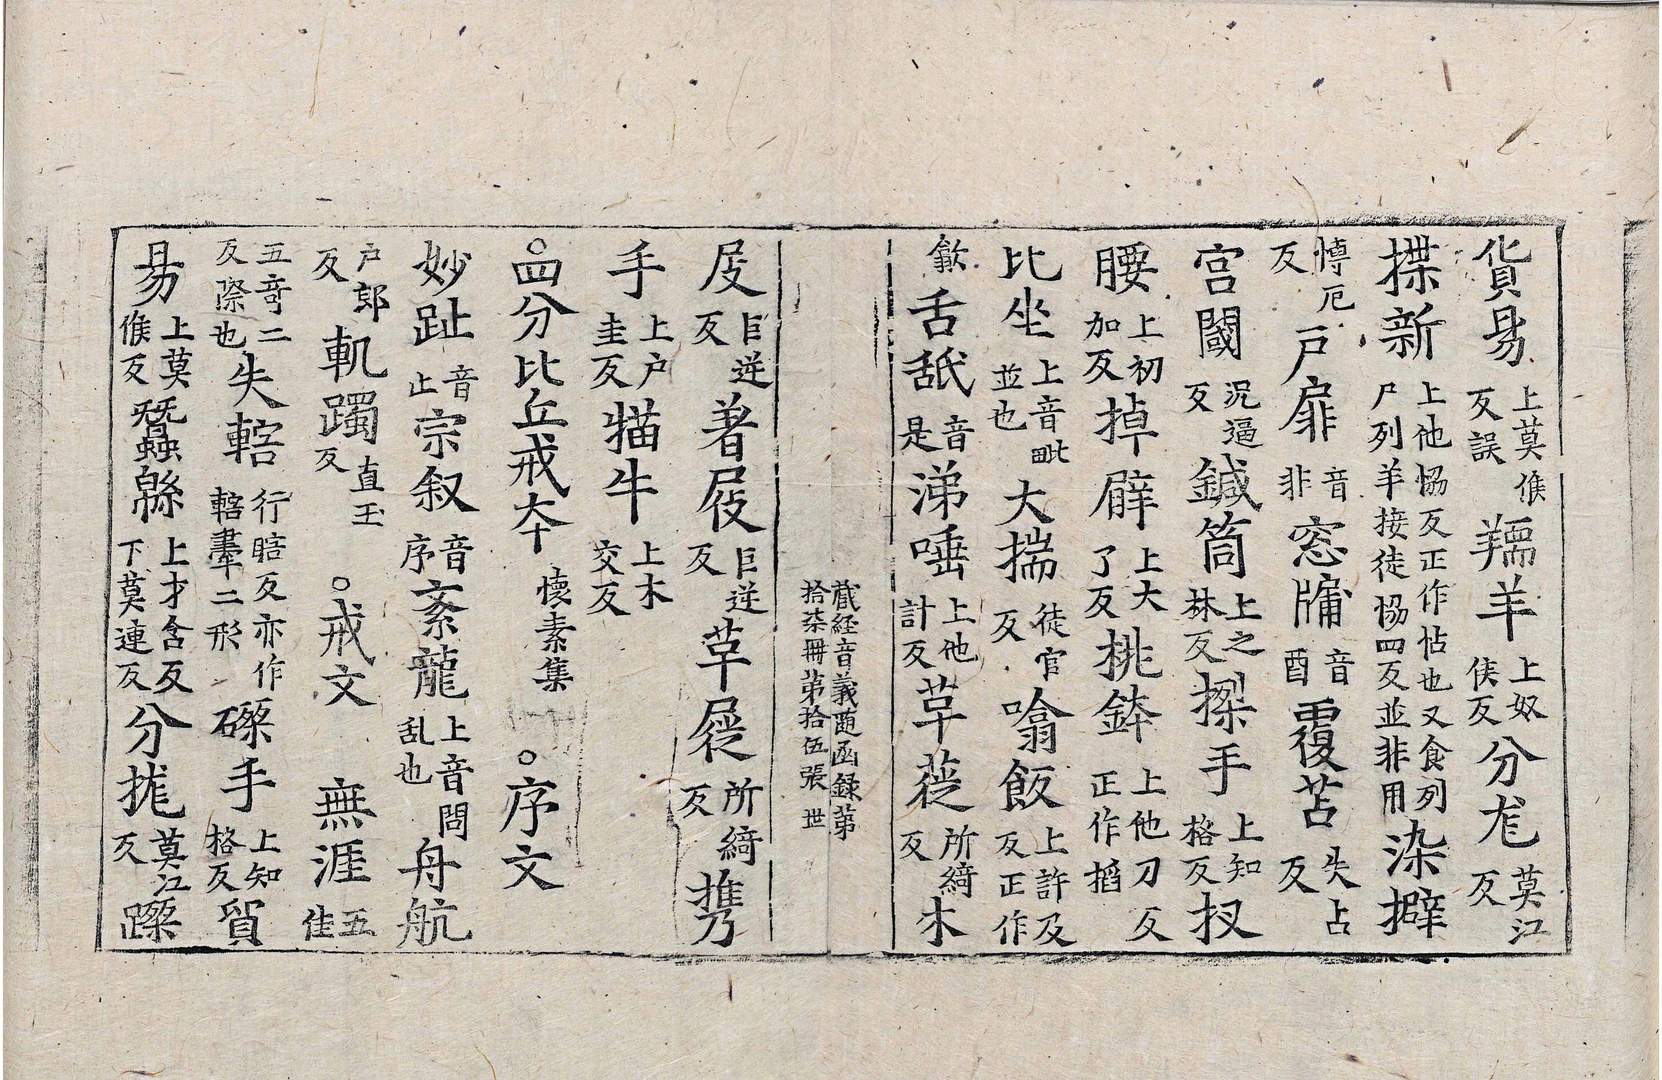 貨易上莫候反誤羺羊上奴侯反分尨莫江反
揲新上他協反正作怗也又食列尸列羊接徒協四反並非用染擗
愽厄反戶扉音非窓牖音酉覆苫失占反
宫閾況逼反鍼筒上之林反搩手上知格反扠
腰上初加反掉臂上大了反挑鉢上他刀反正作搯
比坐上音毗並也大揣徒官反噏飯上許及反正作
歙舌舐音是涕唾上他計反草蓰所綺反木
藏経音義随函録第拾柒冊第拾伍張 世
屐巨逆反著屐巨逆反草屣所綺反攜
手上户圭反猫牛上木交反
○四分比丘戒夲懷素集○序文
妙趾音止宗叙音序紊龍上音問乱也舟航
户郎反軏躅直玉反○戒文無涯五佳
五竒二反際也失轄行瞎反亦作轄舝二形磔手上知格反貿
易上莫候反蠶緜上才含反下莫連反分拢莫江反蹂